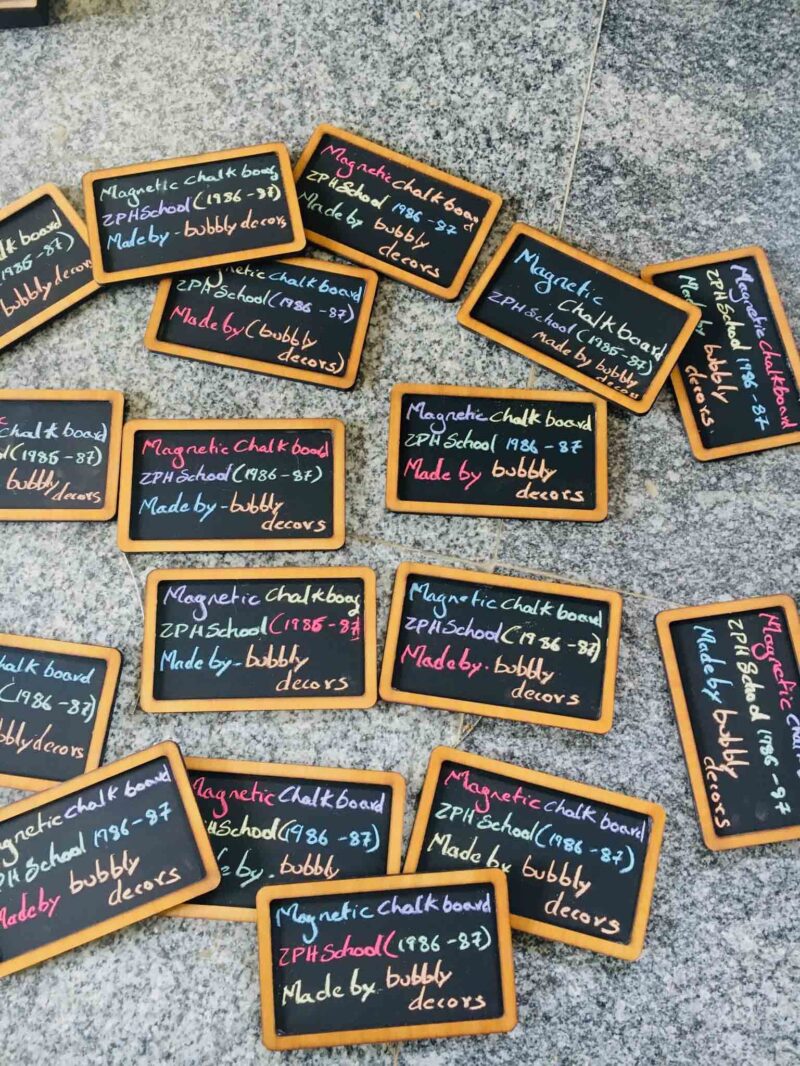 Magnetic Chalk board
ZPHSchool (1986-87)
Made by - bubbly decors
Magnetic chalk board
ZPHSchool 1986-87
Made by bubbly
decors
chalk board
1985-87)
bubbly decors
Magnetic chalk board
ZPHSchool (1986-87)
Made by (bubbly
decors)
Magnetic
Chalkboard
ZPHSchool (1985-87)
made by bubbly
decors
Magnetic Chalkboard
ZPHSchool 1986-87
Made by bubbly
decors
Chalk board
(1985-87)
bubbly decors
Magnetic Chalk board
ZPH School (1986-87)
Made by - bubbly
decors
Magnetic chalk board
ZPHSchool 1986-87
Made by bubbly
decors
Magnetic Chalkboard
ZPHSchool (1985-87
Made by - bubbly
decors
Magnetic chalk board
ZPHSchool (1986-87)
Made by. bubbly
decors
Magnetic
ZPH School 1986-87
Made by bubbly
decors
chalk board
(1986-87)
bubbly decors
Magnetic chalk board
School 1986-87
Made by bubbly
decors
Magnetic Chalk board
ZPHSchool (1986-87)
by. bubbly
Magnetic chalk board
ZPHSchool (1986-87)
Made by bubbly
decors
Magnetic Chalk board
ZPHSchool (1986-87)
Made by. bubbly
decors